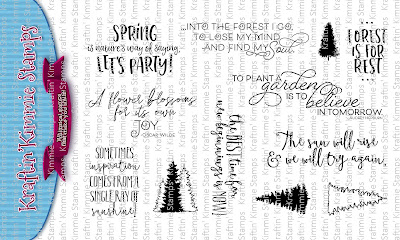 Kraftin' Kimmie Stamps
SPRING
is NATURE'S WAY OF SAYING,
LET'S PARTY!
...INTO THE FOREST I GO,
TO LOSE MY MIND
AND FIND MY Soul
FOREST
IS FOR
REST
...
TO PLANT A
garden
IS TO
believe
IN TOMORROW.
A flower blossoms
for its own
JOY.
OSCAR WILDE
the BEST time for
new beginnings is NOW!
The sun will rise
& we will try again.
SOMETIMES
inspiration
COMES FROM A
SINGLE RAY OF
sunshine!